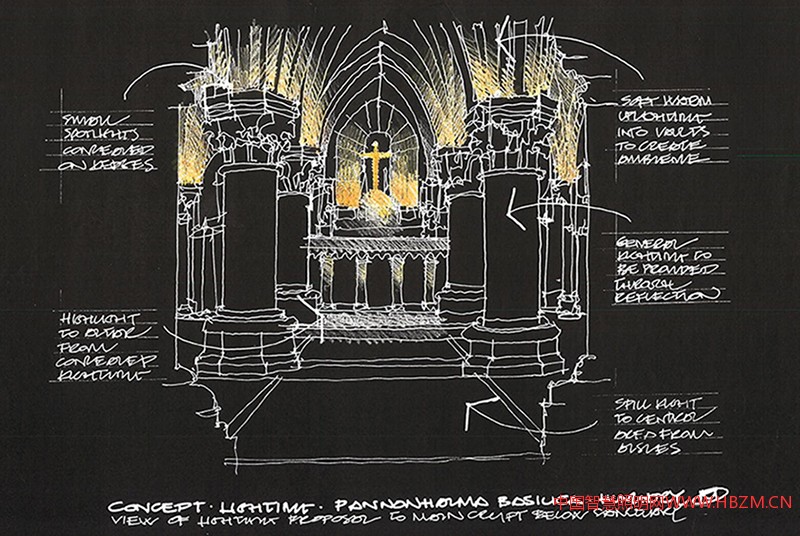 SMALL
SPOTLIGHTS
CONCEALED
ON LEDGES
SOFT WARM
UPLIGHTING
INTO VAULTS
TO CREATE
AMBIENCE
GENERAL
LIGHTING TO
BE PROVIDED
THROUGH
REFLECTION
HIGHLIGHT
TO ALTAR
FROM
CONCEALED
LIGHTING
SPILL LIGHT
TO CENTRAL
AREA FROM
AISLES
CONCEPT · LIGHTING · PANNONHALMA BASILICA
VIEW OF LIGHTING PROPOSAL TO MAIN CRYPT BELOW SANCTUARY
WWW.HBZM.CN